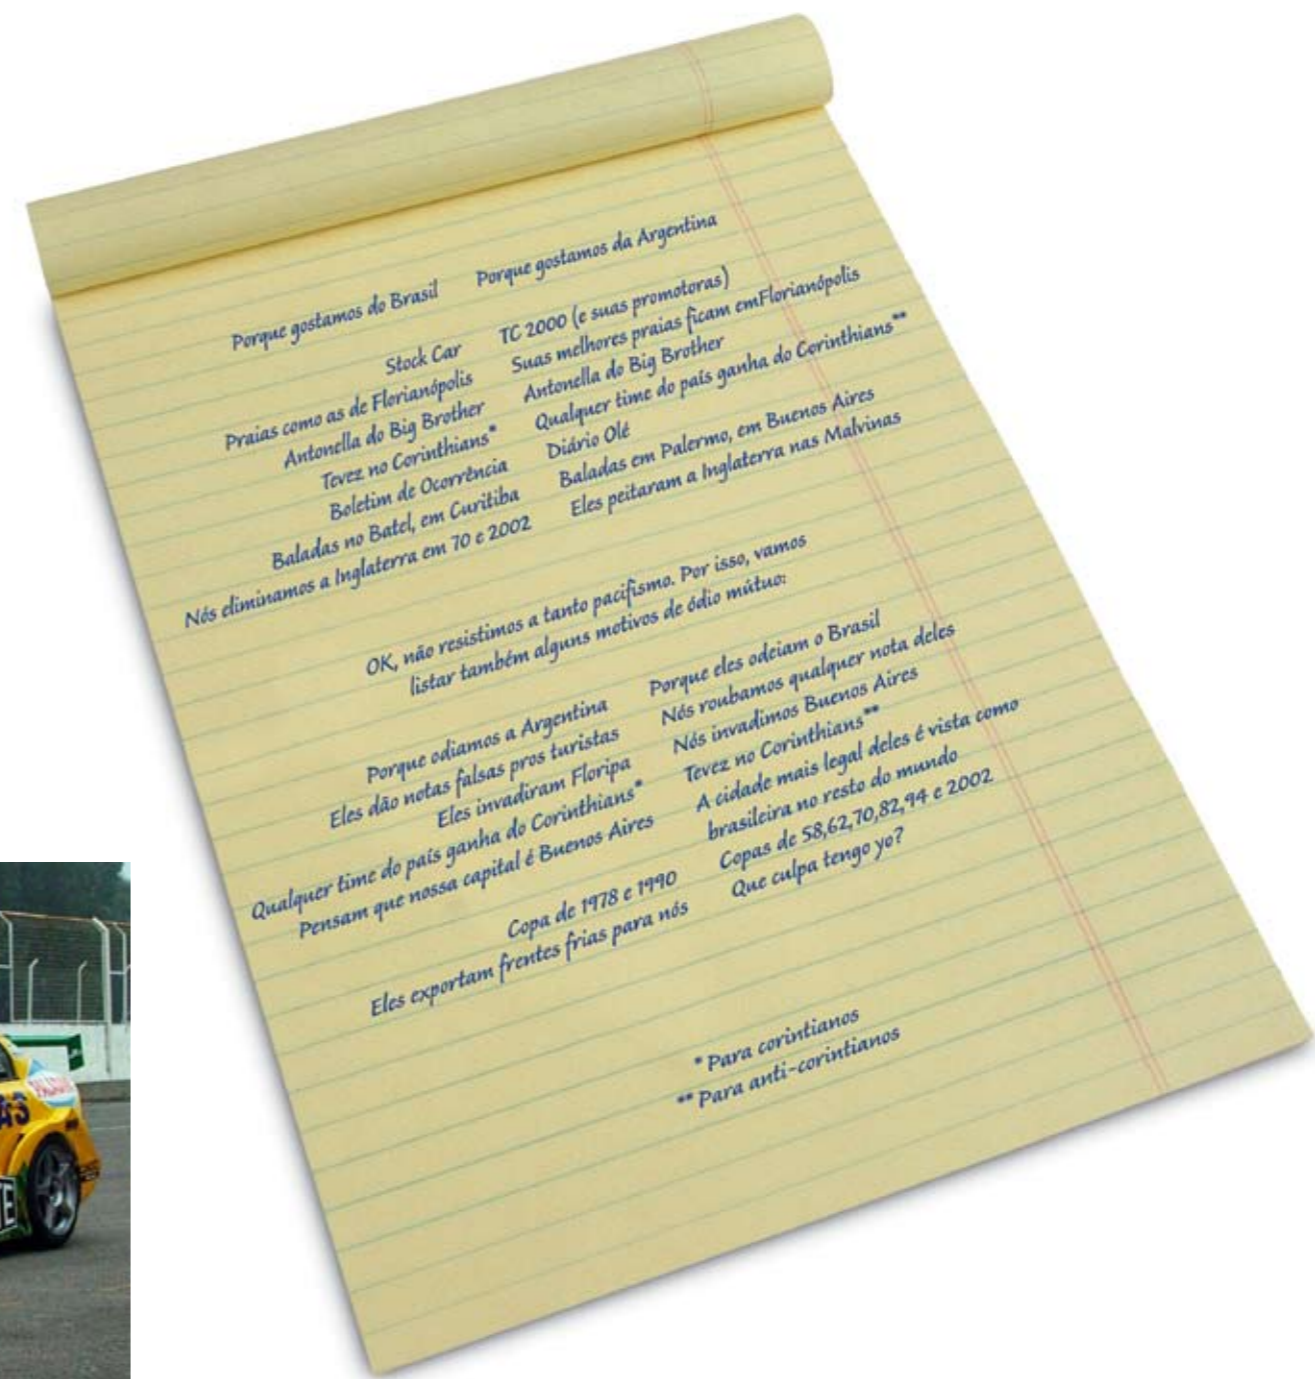 Porque gostamos do Brasil
Stock Car
Praias como as de Florianópolis
Antonella do Big Brother
Tevez no Corinthians*
Boletim de Ocorrência
Baladas no Batel, em Curitiba
Nós eliminamos a Inglaterra em 70 e 2002
Porque gostamos da Argentina
TC 2000 (e suas promotoras)
Suas melhores praias ficam emFlorianópolis
Antonella do Big Brother
Qualquer time do país ganha do Corinthians**
Diário Olé
Baladas em Palermo, em Buenos Aires
Eles peitaram a Inglaterra nas Malvinas
OK, não resistimos a tanto pacifismo. Por isso, vamos
listar também alguns motivos de ódio mútuo:
Porque odiamos a Argentina
Eles dão notas falsas pros turistas
Eles invadiram Floripa
Qualquer time do país ganha do Corinthians*
Pensam que nossa capital é Buenos Aires
Copa de 1978 e 1990
Eles exportam frentes frias para nós
Porque eles odeiam o Brasil
Nós roubamos qualquer nota deles
Nós invadimos Buenos Aires
Tevez no Corinthians**
A cidade mais legal deles é vista como
brasileira no resto do mundo
Copas de 58,62,70,82,94 e 2002
Que culpa tengo yo?
* Para corintianos
** Para anti-corintianos